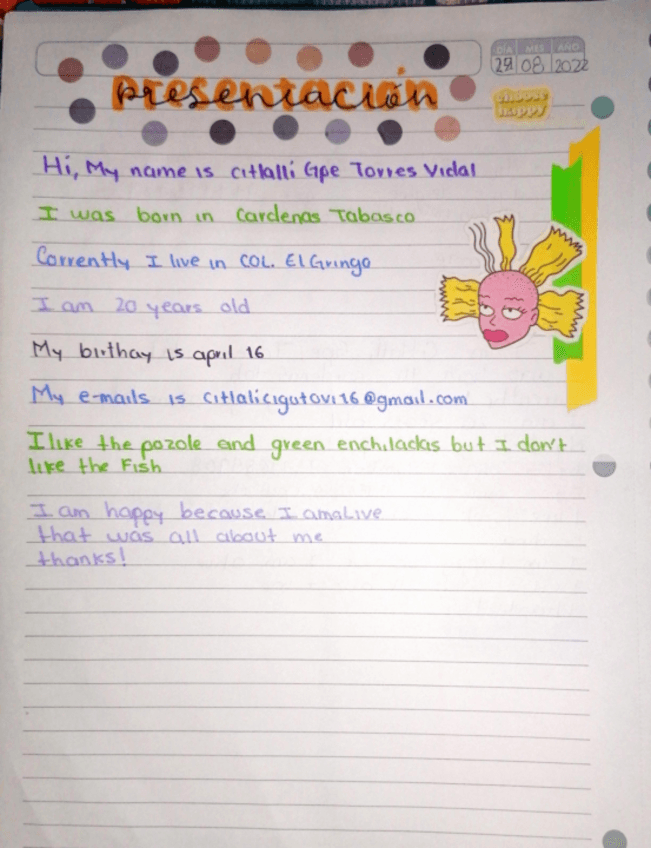 DÍA MES AÑO
29 08 2022
presentación
choose
happy
Hi, My name is citlalli Gpe Torres Vidal
I was born in Cardenas Tabasco
Corrently I live in COL. El Gringo
I am 20 years old
My birthay is april 16
My e-mails is citlalicigutovi16@gmail.com
I like the pozole and green enchiladas but I don't
like the Fish
I am happy because I amaLive
that was all about me
thanks!